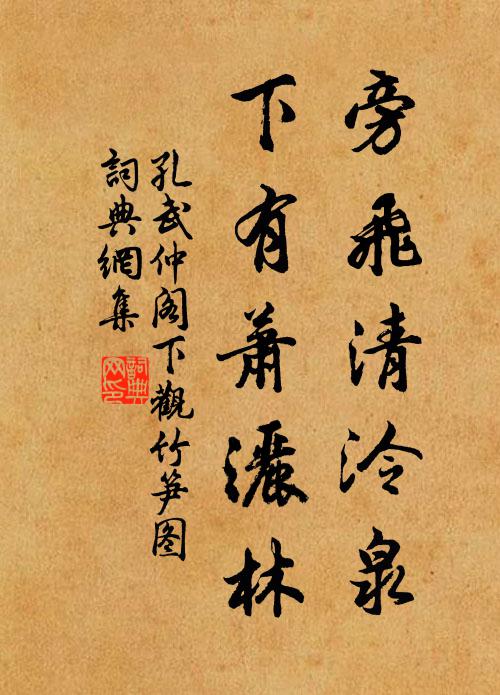 旁飛清泠泉
下有蕭灑林
孔武仲阁下觀竹笋图
詞典網集
詞典
网印